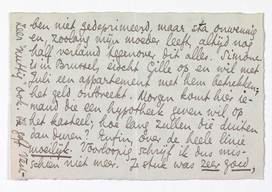 ben niet gedeprimeerd, maar sta onwennig
en, zoolang mijn moeder leeft, altijd nog
half verland tegenover dit alles. Simone
is in Brussel, zoekt Gille op en wil met
Juli een appartement met hem betrekken,
het geld ontbreekt. Morgen komt hier ie-
mand die een hypotheek geven wil op
het kasteel; hoe lang zullen die duiten
dan duren? Enfin, over de heele linie
moeilijk. Voorloopig schrijf ik ons mis-
schien niet meer. Je stuk was zeer goed,
zeer nuttig ook. Ik geef